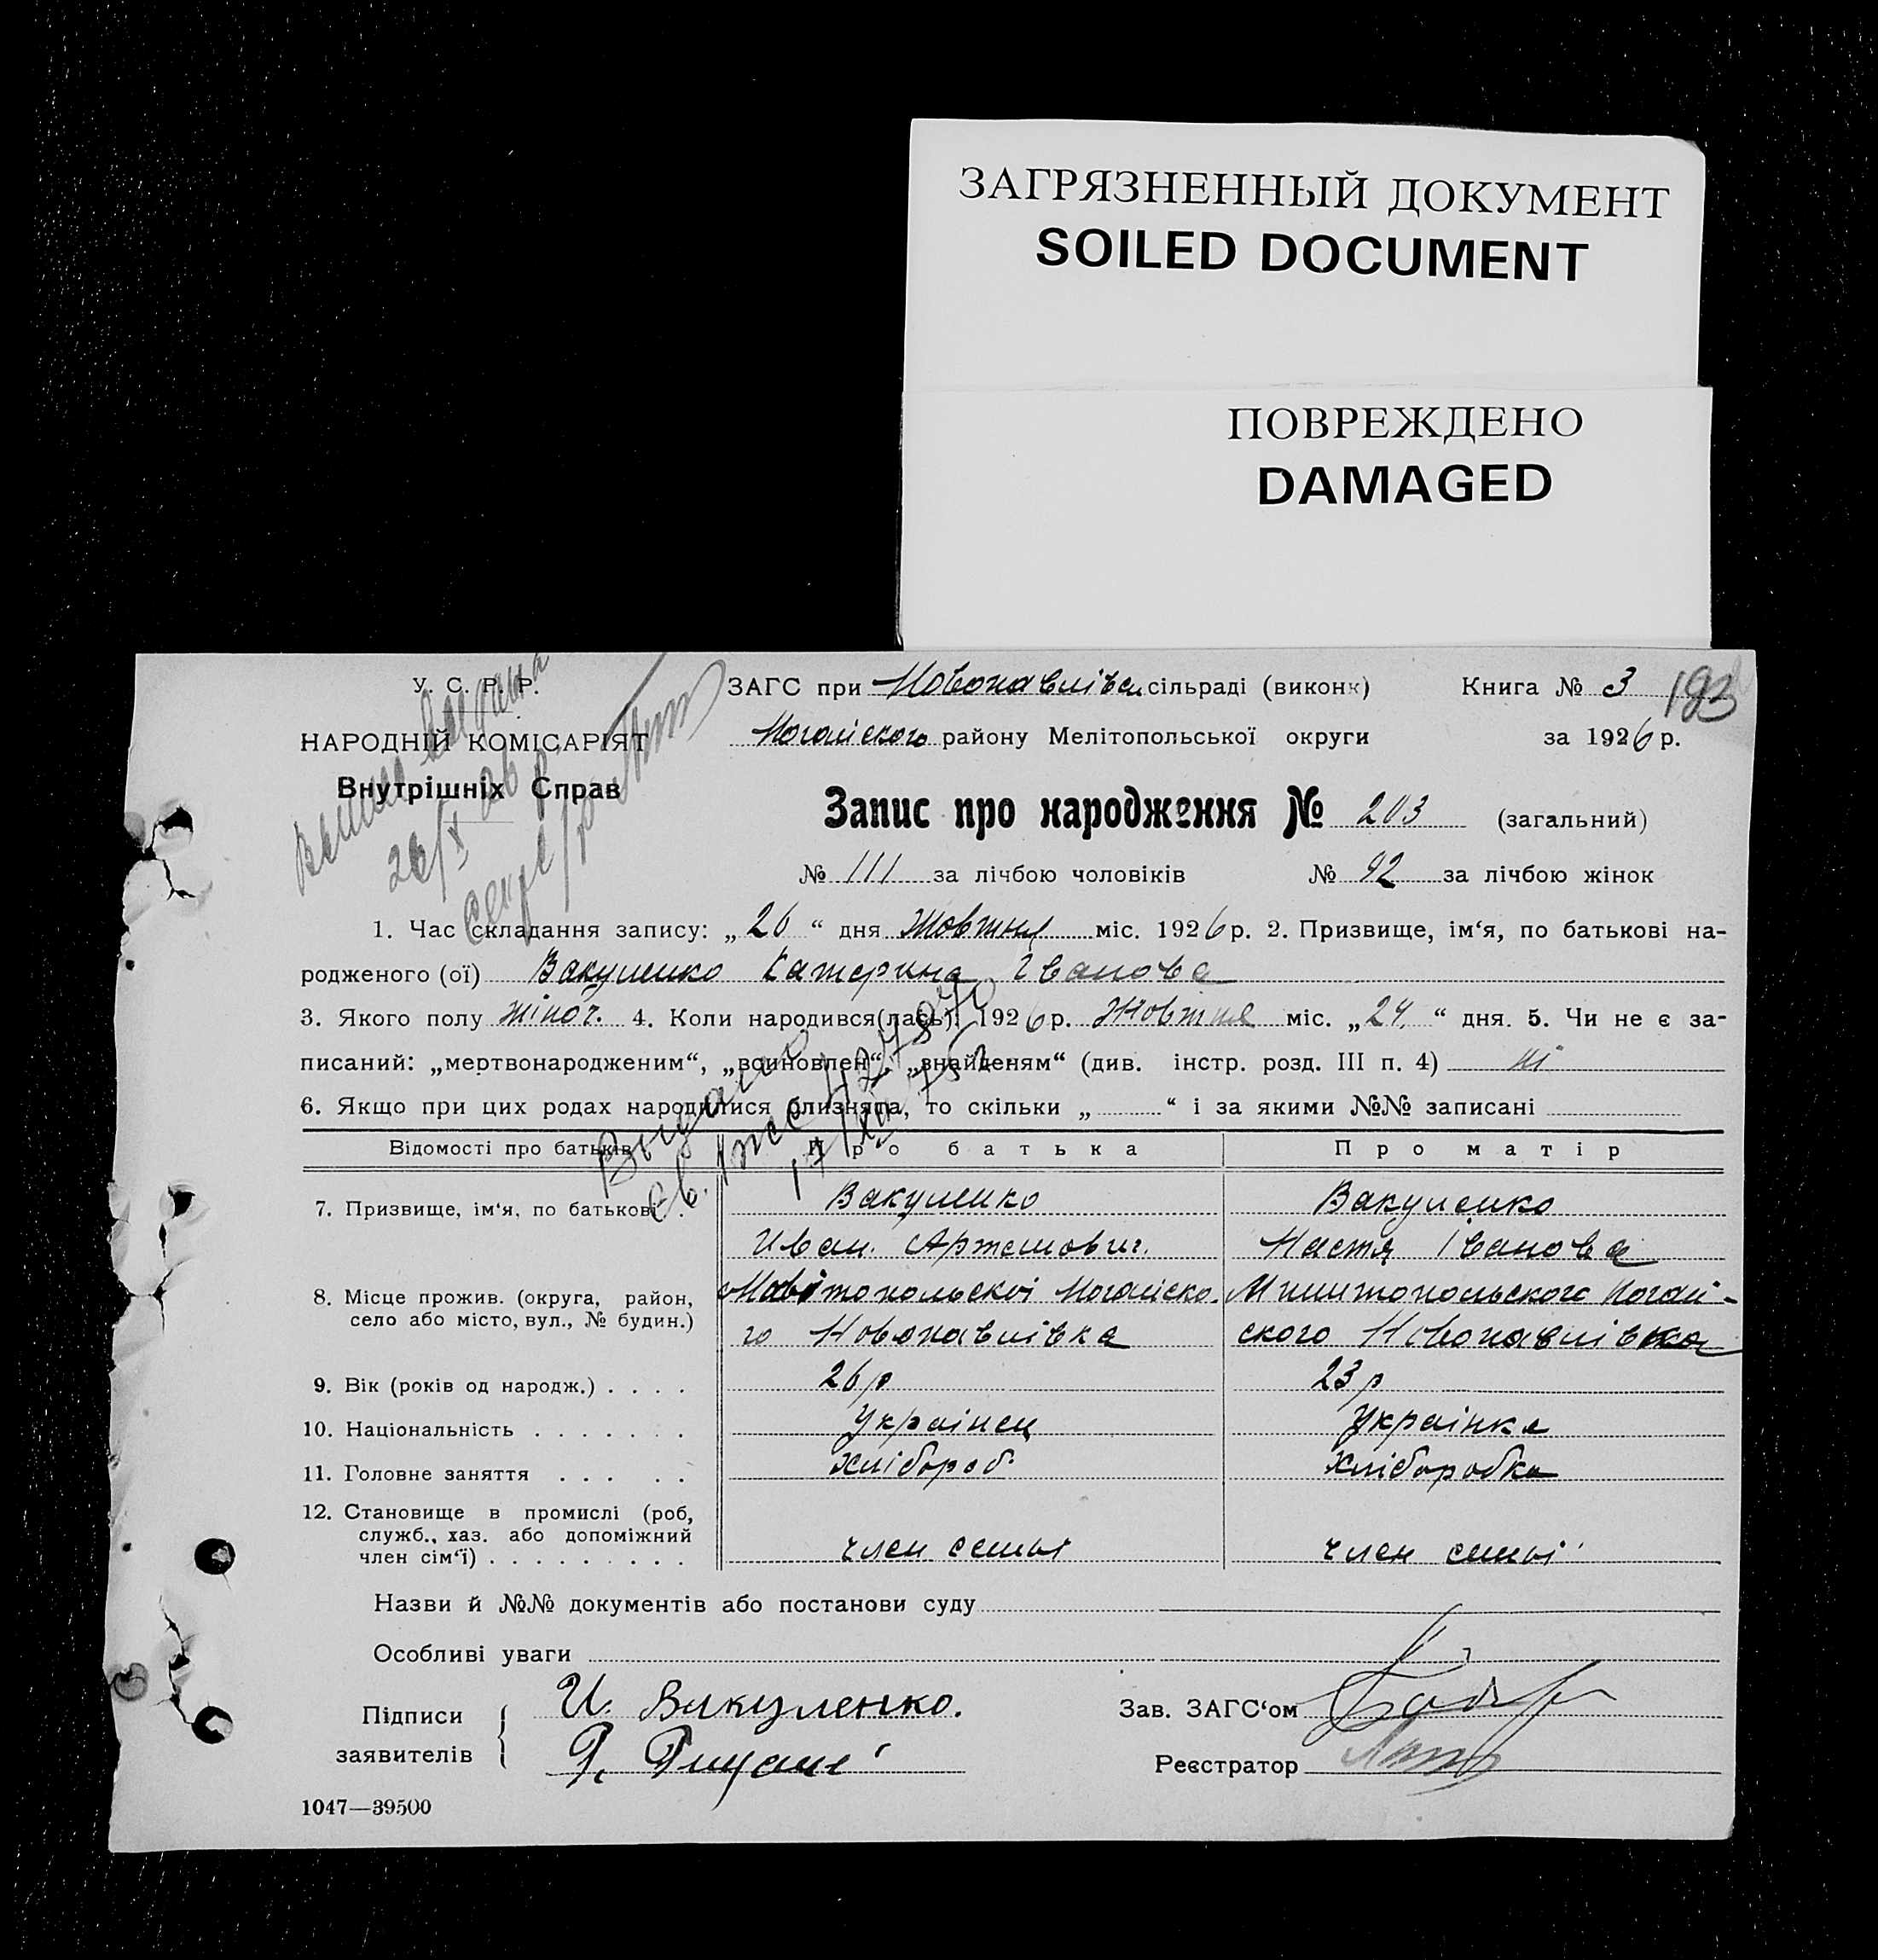 ЗАГРЯЗНЕННЫЙ ДОКУМЕНТ
SOILED DOCUMENT
ПОВРЕЖДЕНО
DAMAGED
У. С. Р. Р.
НАРОДНІЙ КОМІСАРІЯТ
Внутрішніх Справ
26/X 26 р.
ЗАГС при Новопавлівск сільраді (виконк) Книга № 3 193
Ногайского району Мелітопольської округи за 1926 р.
Запис про народження № 203 (загальний)
№ 111 за лічбою чоловіків № 92 за лічбою жінок
1. Час складання запису: „26“ дня Жовтня міс. 1926 р. 2. Призвище, ім‘я, по батькові на-
родженого (ої) Вакуленко Катерина Іванова
3. Якого полу жіноч. 4. Коли народився(лась) 1926 р. Жовтня міс. „24“ дня. 5. Чи не є за-
писаний: „мертвонародженим“, „воиновлен“, „знайденям“ (див. інстр. розд. III п. 4) ні
6. Якщо при цих родах народилися близнята, то скільки „ “ і за якими №№ записані
Выдано
Відомості про батьків Про батька Про матір
7. Призвище, ім‘я, по батькові . Вакуленко Вакуленко
Иван. Артемович. Настя Іванова
8. Місце прожив. (округа, район, село або місто, вул., № будин.) Ногайско- Милитопольского Ногай-
го Новопавлівка ского Новопавлівка
9. Вік (років од народж.) . . . . 26 р 23 р
10. Національність . . . . . . . Українец Українка
11. Головне заняття . . . . . Хлібороб. Хліборобка
12. Становище в промислі (роб,
служб., хаз. або допоміжний
член сім‘ї) . . . . . . . . . член семьі член семьі
Назви й №№ документів або постанови суду
Особливі уваги
Підписи заявителів И. Вакуленко. Зав. ЗАГС‘ом
Реєстратор
1047—39500